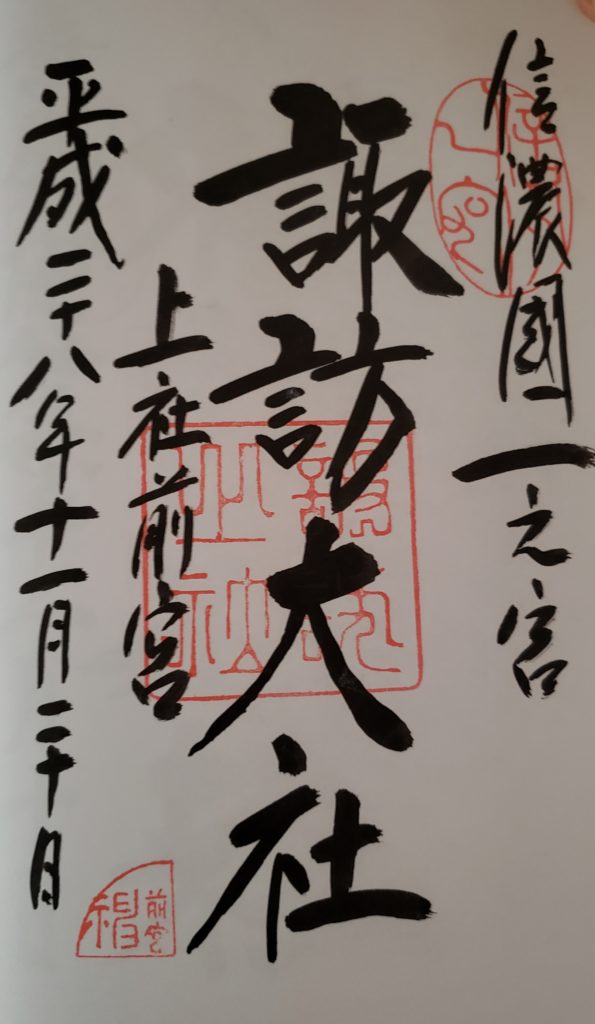 信濃國一之宮
諏訪大社
上社前宮
平成二十八年十一月二十日
前宮